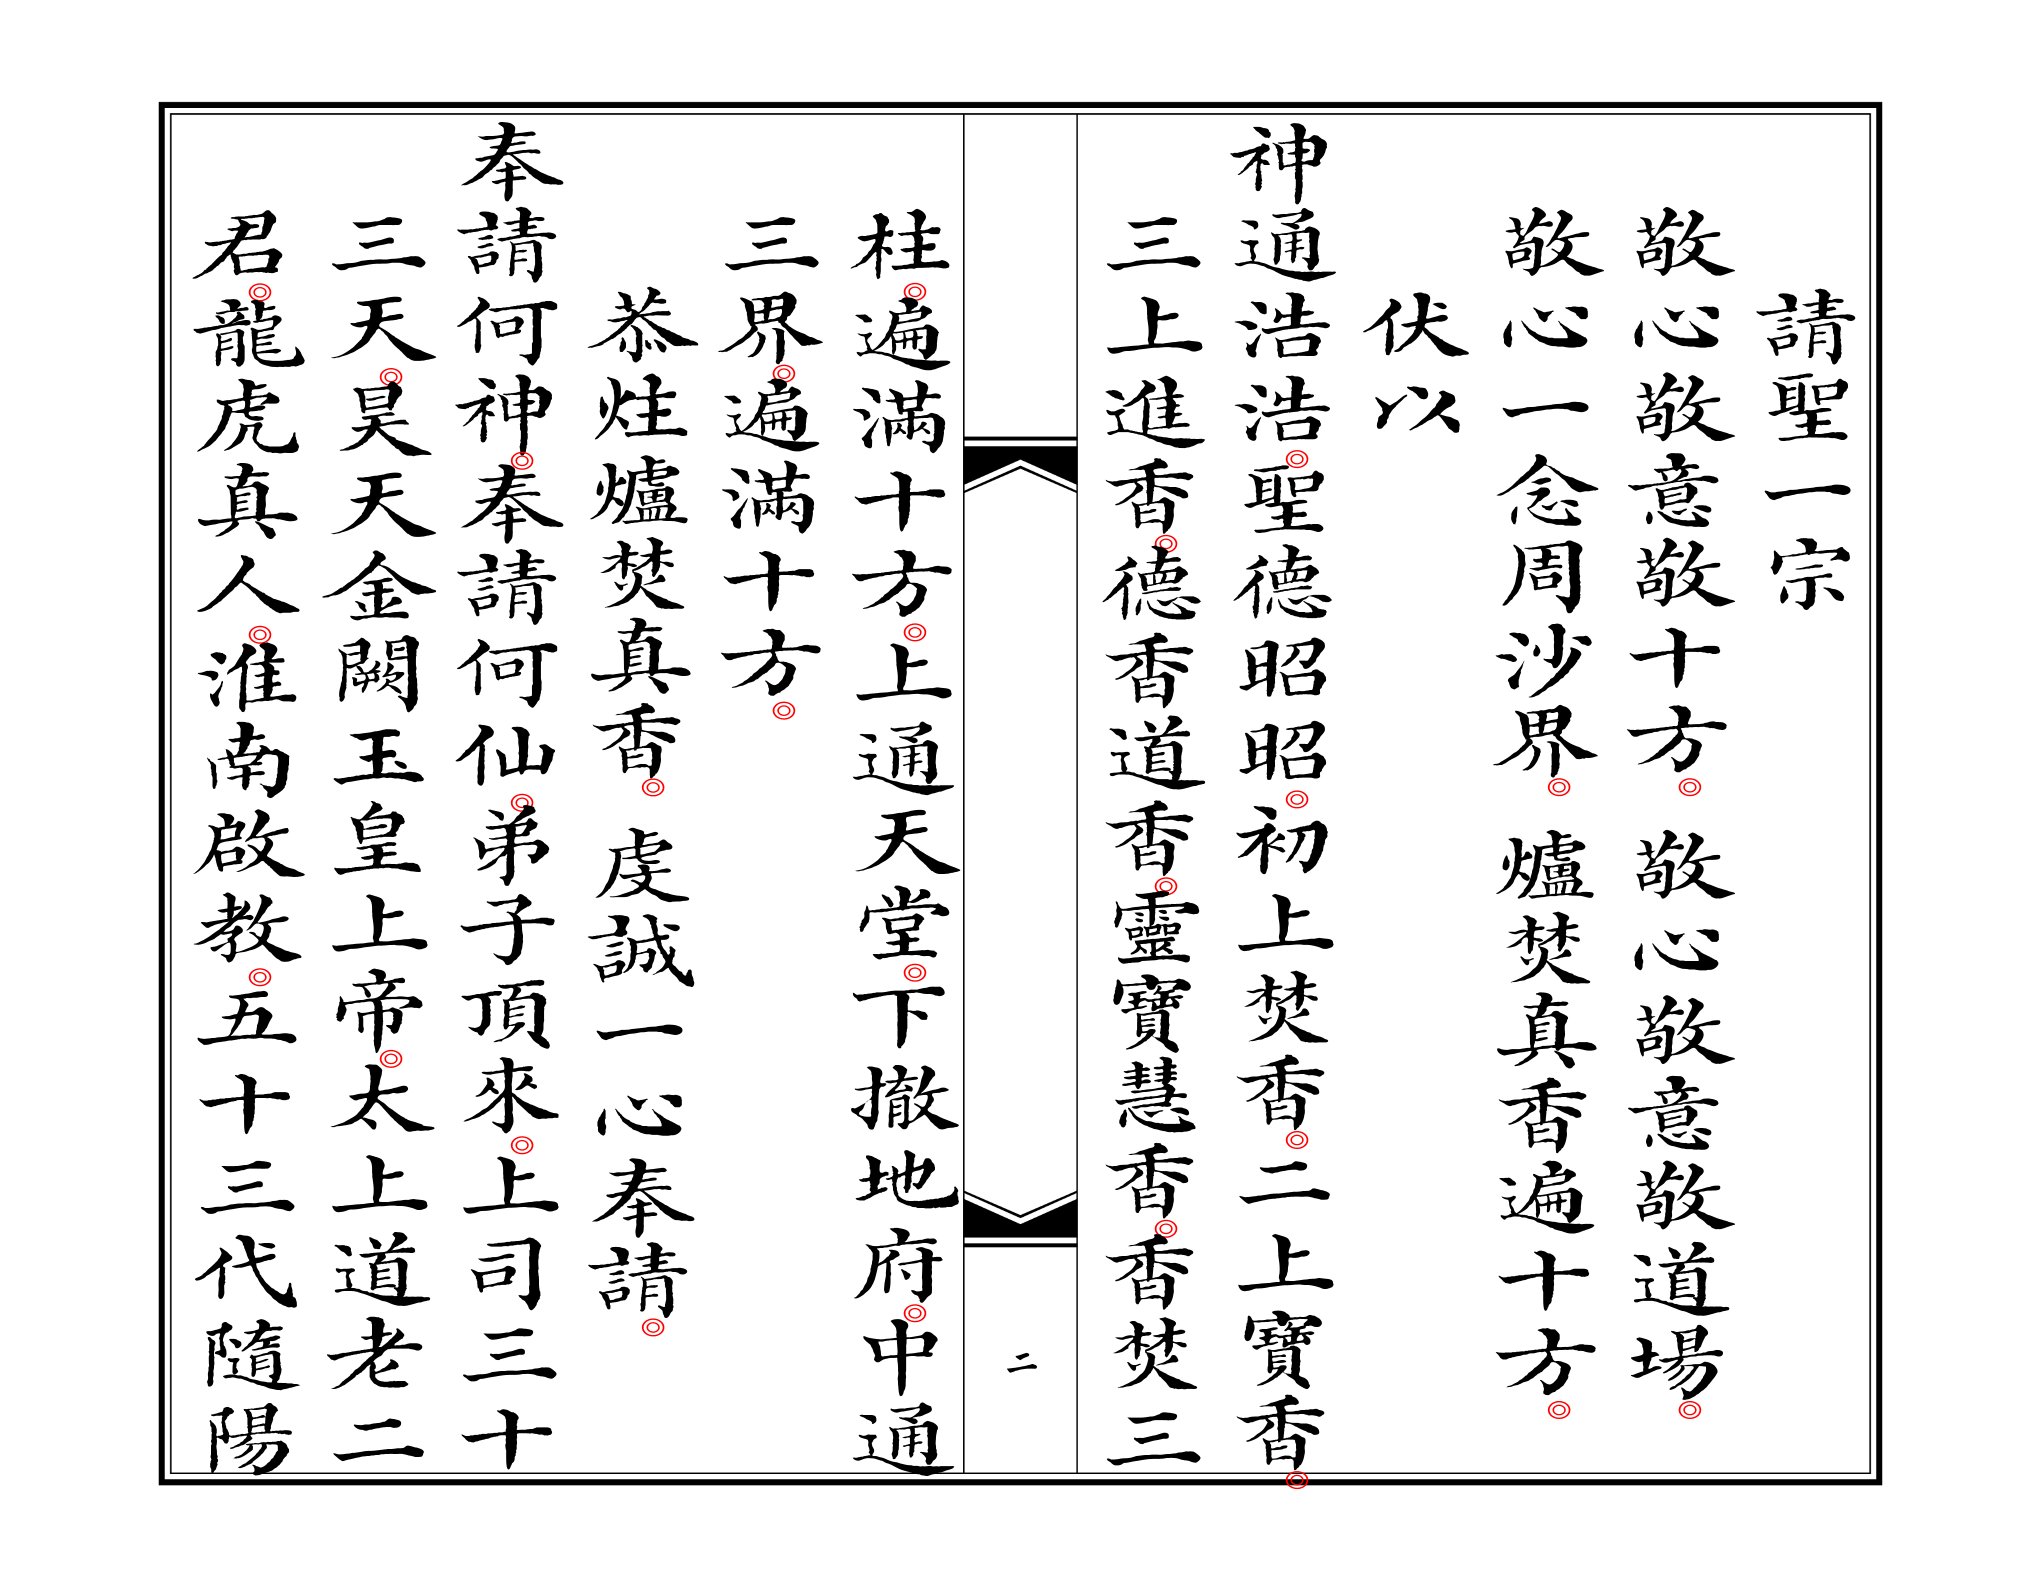 請聖一宗
敬心敬意敬十方◎敬心敬意敬道場◎
敬心一念周沙界◎爐焚真香遍十方◎
伏以
神通浩浩◎聖德昭昭◎初上焚香◎二上寶香◎
三上進香◎德香道香◎靈寶慧香◎香焚三
二
柱◎遍滿十方◎上通天堂◎下撤地府◎中通
三界◎遍滿十方◎
恭炷爐焚真香◎虔誠一心奉請◎
奉請何神◎奉請何仙◎弟子頂來◎上司三十
三天◎昊天金闕玉皇上帝◎太上道老二
君◎龍虎真人◎淮南啟教◎五十三代隨陽